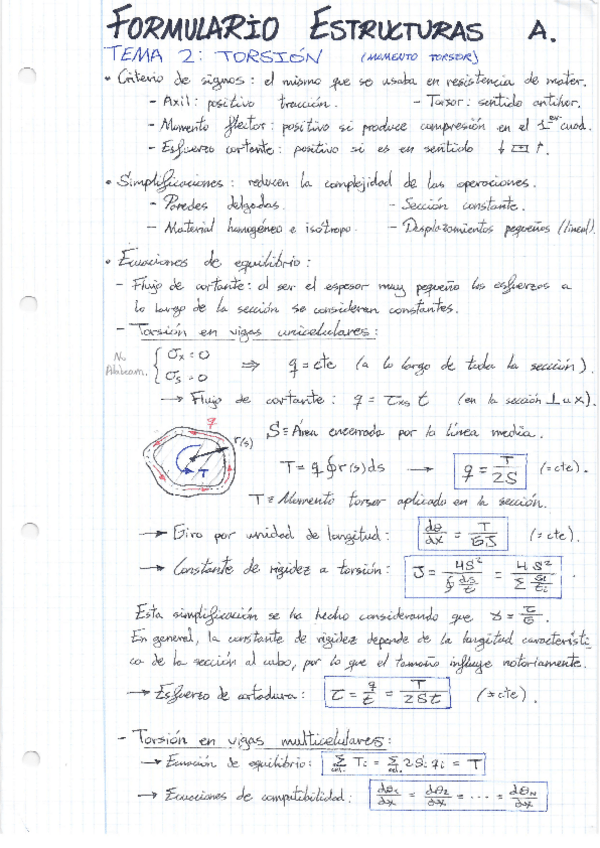 FORMULARIO ESTRUCTURAS A.
TEMA 2: TORSIÓN (MOMENTO TORSOR)
• Criterio de signos: el mismo que se usaba en resistencia de mater.
- Axil: positivo tracción. - Torsor: sentido antihor.
- Momento flector: positivo si produce compresión en el 1er cuad.
- Esfuerzo cortante: positivo si es en sentido ↓ ▭ ↑.
• Simplificaciones: reducen la complejidad de las operaciones.
- Paredes delgadas. - Sección constante.
- Material homogéneo e isótropo. - Desplazamientos pequeños (lineal).
• Ecuaciones de equilibrio:
- Flujo de cortante: al ser el espesor muy pequeño los esfuerzos a
lo largo de la sección se consideran constantes.
- Torsión en vigas unicelulares:
No Alabeam. { σx = 0 σs = 0 ⇒ q = cte (a lo largo de toda la sección).
→ Flujo de cortante: q = τxs t (en la sección ⊥ a x).
q r(s) T
S ≡ Área encerrada por la línea media.
T = q ∮ r(s) ds → q = T/2S (= cte).
T ≡ Momento torsor aplicado en la sección.
→ Giro por unidad de longitud: dθ/dx = T/GJ (= cte).
→ Constante de rigidez a torsión: J = 4S²/∮ ds/t = 4S²/Σ si/ti .
Esta simplificación se ha hecho considerando que γ = τ/G.
En general, la constante de rigidez depende de la longitud característi
ca de la sección al cubo, por lo que el tamaño influye notoriamente.
→ Esfuerzo de cortadura: τ = q/t = T/2St (= cte).
- Torsión en vigas multicelulares:
→ Ecuación de equilibrio: Σ Ti = Σ 2Si qi = T
→ Ecuaciones de compatibilidad: dθ1/dx = dθ2/dx = .... = dθN/dx